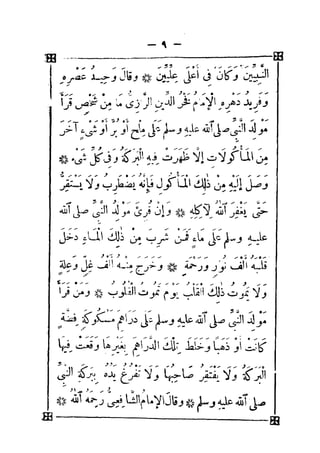 — ٩ —
النَّبِيِّينَ وَكَانَ فِى أَعْلَى عِلِّيِّينَ * وَقَالَ وَحِيدُ عَصْرِهِ
وَفَرِيدُ دَهْرِهِ الْإِمَامُ فَخْرُ الدِّينِ الرَّازِىُّ مَا مِنْ شَخْصٍ قَرَأَ
مَوْلِدَ النَّبِىِّ صلى الله عليه وسلم عَلَى مِلْحٍ أَوْ بُرٍّ أَوْ شَىْءٍ آخَرَ
مِنَ الْمَأْكُولَاتِ إِلَّا ظَهَرَتْ فِيهِ الْبَرَكَةُ وَفِى كُلِّ شَىْءٍ *
وَصَلَ إِلَيْهِ مِنْ ذٰلِكَ الْمَأْكُولِ فَإِنَّهُ يَضْطَرِبُ وَلَا يَسْتَقِرُّ
حَتَّى يَغْفِرَ اللهُ لِآكِلِهِ * وَإِنْ قُرِئَ مَوْلِدُ النَّبِىِّ صلى الله
عليه وسلم عَلَى مَاءٍ فَمَنْ شَرِبَ مِنْ ذٰلِكَ الْمَاءِ دَخَلَ
قَلْبَهُ أَلْفُ نُورٍ وَرَحْمَةٍ * وَخَرَجَ مِنْهُ أَلْفُ غِلٍّ وَعِلَّةٍ
وَلَا يَمُوتُ ذٰلِكَ الْقَلْبُ يَوْمَ تَمُوتُ الْقُلُوبُ * وَمَنْ قَرَأَ
مَوْلِدَ النَّبِىِّ صلى الله عليه وسلم عَلَى دَرَاهِمَ مَسْكُوكَةٍ فِضَّةً
كَانَتْ أَوْ ذَهَبًا وَخَلَطَ تِلْكَ الدَّرَاهِمَ بِغَيْرِهَا وَقَعَتْ فِيهَا
الْبَرَكَةُ وَلَا يَفْتَقِرُ صَاحِبُهَا وَلَا تَفْرُغُ يَدُهُ بِبَرَكَةِ النَّبِىِّ
صلى الله عليه وسلم * وَقَالَ الْإِمَامُ الشَّافِعِىُّ رَحِمَهُ اللهُ *